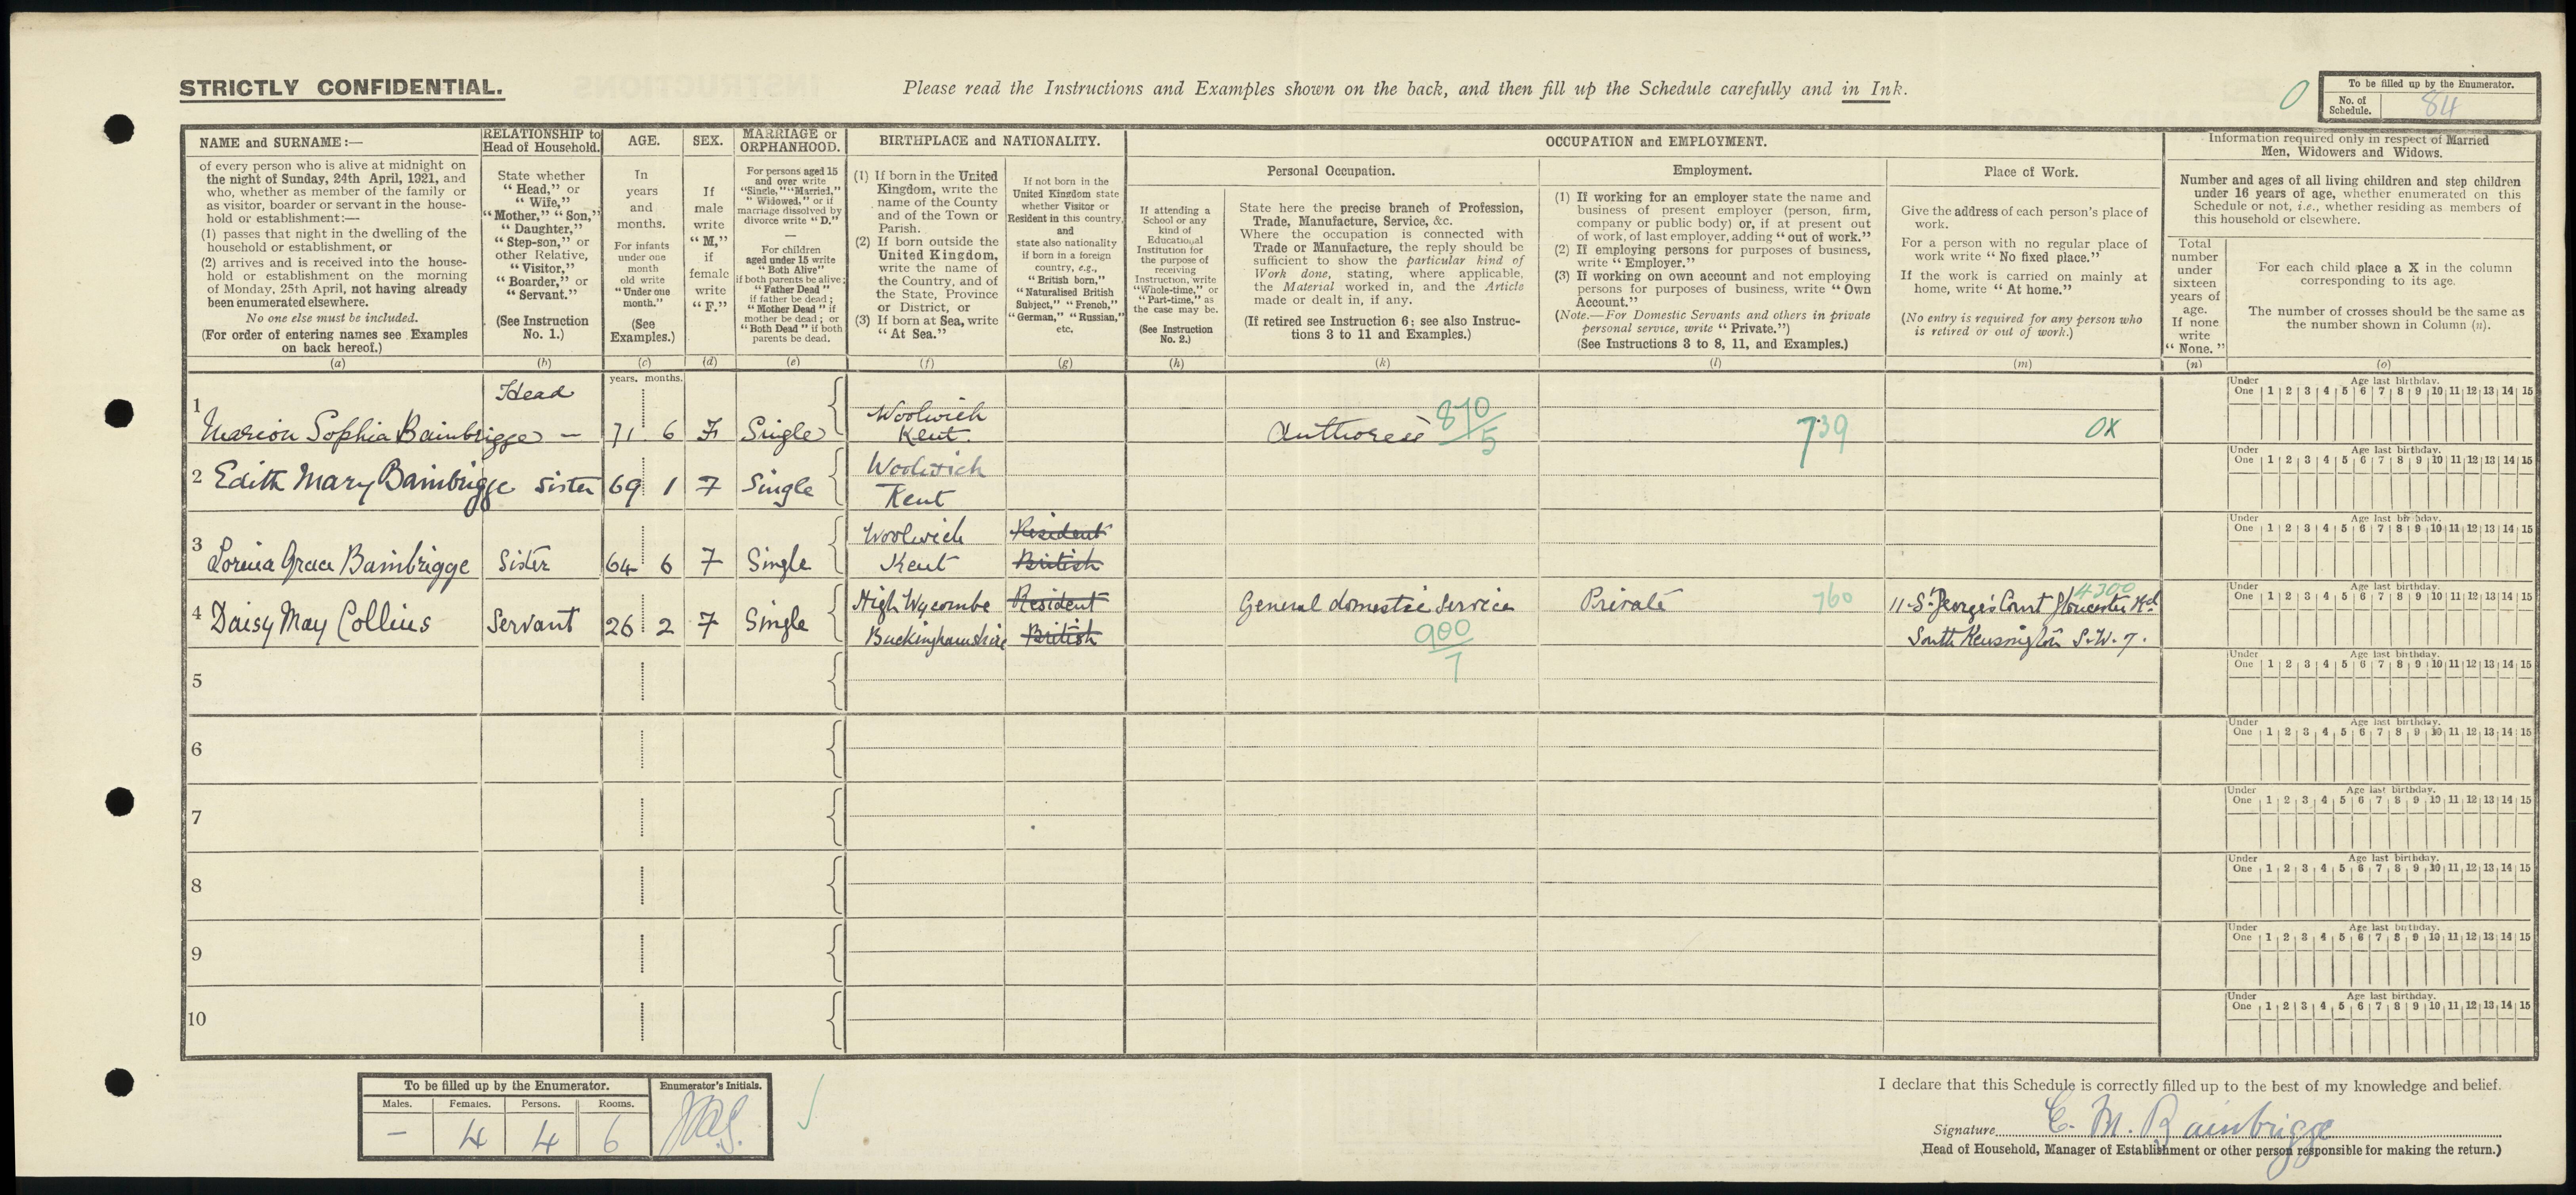 STRICTLY CONFIDENTIAL.
Please read the Instructions and Examples shown on the back, and then fill up the Schedule carefully and in Ink.
0
To be filled up by the Enumerator.
No. of Schedule. 84
NAME and SURNAME:—
of every person who is alive at midnight on
the night of Sunday, 24th April, 1921, and
who, whether as member of the family or
as visitor, boarder or servant in the house-
hold or establishment:—
(1) passes that night in the dwelling of the
household or establishment, or
(2) arrives and is received into the house-
hold or establishment on the morning
of Monday, 25th April, not having already
been enumerated elsewhere.
No one else must be included.
(For order of entering names see Examples
on back hereof.)
(a)
RELATIONSHIP to
Head of Household.
State whether
"Head," or
"Wife,"
"Mother," "Son,"
"Daughter,"
"Step-son," or
other Relative,
"Visitor,"
"Boarder," or
"Servant."
(See Instruction
No. 1.)
(b)
AGE.
In
years
and
months.
For infants
under one
month
old write
"Under one
month."
(See
Examples.)
(c)
SEX.
If
male
write
"M,"
if
female
write
"F."
(d)
MARRIAGE or
ORPHANHOOD.
For persons aged 15
and over write
"Single," "Married,"
"Widowed," or if
marriage dissolved by
divorce write "D."
—
For children
aged under 15 write
"Both Alive"
if both parents be alive;
"Father Dead"
if father be dead;
"Mother Dead" if
mother be dead; or
"Both Dead" if both
parents be dead.
(e)
BIRTHPLACE and NATIONALITY.
(1) If born in the United
Kingdom, write the
name of the County
and of the Town or
Parish.
(2) If born outside the
United Kingdom,
write the name of
the Country, and of
the State, Province
or District, or
(3) If born at Sea, write
"At Sea."
(f)
If not born in the
United Kingdom state
whether Visitor or
Resident in this country,
and
state also nationality
if born in a foreign
country, e.g.,
"British born,"
"Naturalised British
Subject," "French,"
"German," "Russian,"
etc.
(g)
OCCUPATION and EMPLOYMENT.
If attending a
School or any
kind of
Educational
Institution for
the purpose of
receiving
Instruction, write
"Whole-time," or
"Part-time," as
the case may be.
(See Instruction
No. 2.)
(h)
Personal Occupation.
State here the precise branch of Profession,
Trade, Manufacture, Service, &c.
Where the occupation is connected with
Trade or Manufacture, the reply should be
sufficient to show the particular kind of
Work done, stating, where applicable,
the Material worked in, and the Article
made or dealt in, if any.
(If retired see Instruction 6; see also Instruc-
tions 3 to 11 and Examples.)
(k)
Employment.
(1) If working for an employer state the name and
business of present employer (person, firm,
company or public body) or, if at present out
of work, of last employer, adding "out of work."
(2) If employing persons for purposes of business,
write "Employer."
(3) If working on own account and not employing
persons for purposes of business, write "Own
Account."
(Note.—For Domestic Servants and others in private
personal service, write "Private.")
(See Instructions 3 to 8, 11, and Examples.)
(l)
Place of Work.
Give the address of each person's place of
work.
For a person with no regular place of
work write "No fixed place."
If the work is carried on mainly at
home, write "At home."
(No entry is required for any person who
is retired or out of work.)
(m)
Information required only in respect of Married
Men, Widowers and Widows.
Number and ages of all living children and step children
under 16 years of age, whether enumerated on this
Schedule or not, i.e., whether residing as members of
this household or elsewhere.
Total
number
under
sixteen
years of
age.
If none
write
"None."
(n)
For each child place a X in the column
corresponding to its age.
The number of crosses should be the same as
the number shown in Column (n).
(o)
years. months.
Under One Age last birthday. 1 2 3 4 5 6 7 8 9 10 11 12 13 14 15
Head
Woolwich
1 Marion Sophia Bainbrigge — 71 6 F Single Kent. Authoress 870/5 739 OX
Under One Age last birthday. 1 2 3 4 5 6 7 8 9 10 11 12 13 14 15
Woolwich
2 Edith Mary Bainbrigge Sister 69 1 F Single Kent
Under One Age last birthday. 1 2 3 4 5 6 7 8 9 10 11 12 13 14 15
Woolwich Resident
3 Lorina Grace Bainbrigge Sister 64 6 F Single Kent British
Under One Age last birthday. 1 2 3 4 5 6 7 8 9 10 11 12 13 14 15
High Wycombe Resident General domestic Service Private 760 11 St George's Court Gloucester Rd 4300
4 Daisy May Collins Servant 26 2 F Single Buckinghamshire British 900/7 South Kensington S.W.7.
Under One Age last birthday. 1 2 3 4 5 6 7 8 9 10 11 12 13 14 15
5
Under One Age last birthday. 1 2 3 4 5 6 7 8 9 10 11 12 13 14 15
6
Under One Age last birthday. 1 2 3 4 5 6 7 8 9 10 11 12 13 14 15
7
Under One Age last birthday. 1 2 3 4 5 6 7 8 9 10 11 12 13 14 15
8
Under One Age last birthday. 1 2 3 4 5 6 7 8 9 10 11 12 13 14 15
9
Under One Age last birthday. 1 2 3 4 5 6 7 8 9 10 11 12 13 14 15
10
To be filled up by the Enumerator.
Males. Females. Persons. Rooms.
– 4 4 6
Enumerator's Initials.
I declare that this Schedule is correctly filled up to the best of my knowledge and belief.
Signature E. M. Bainbrigge
Head of Household, Manager of Establishment or other person responsible for making the return.)